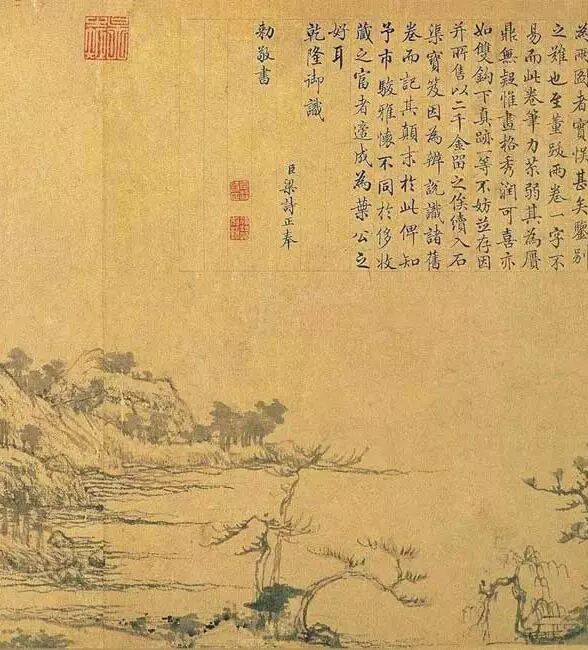 為兩圖者實悮甚矣鑒別
之難也至董跋兩卷一字不
易而此卷筆力苶弱其為贗
鼎無疑惟畫格秀潤可喜亦
如雙鉤下真跡一等不妨並存因
并所售以二千金留之俟續入石
渠寶笈因為辨說識諸舊
卷而記其顛末於此俾知
予市駿雅懷不同於侈收
藏之富者適成為葉公之
好耳
乾隆御識
臣梁詩正奉
勅敬書